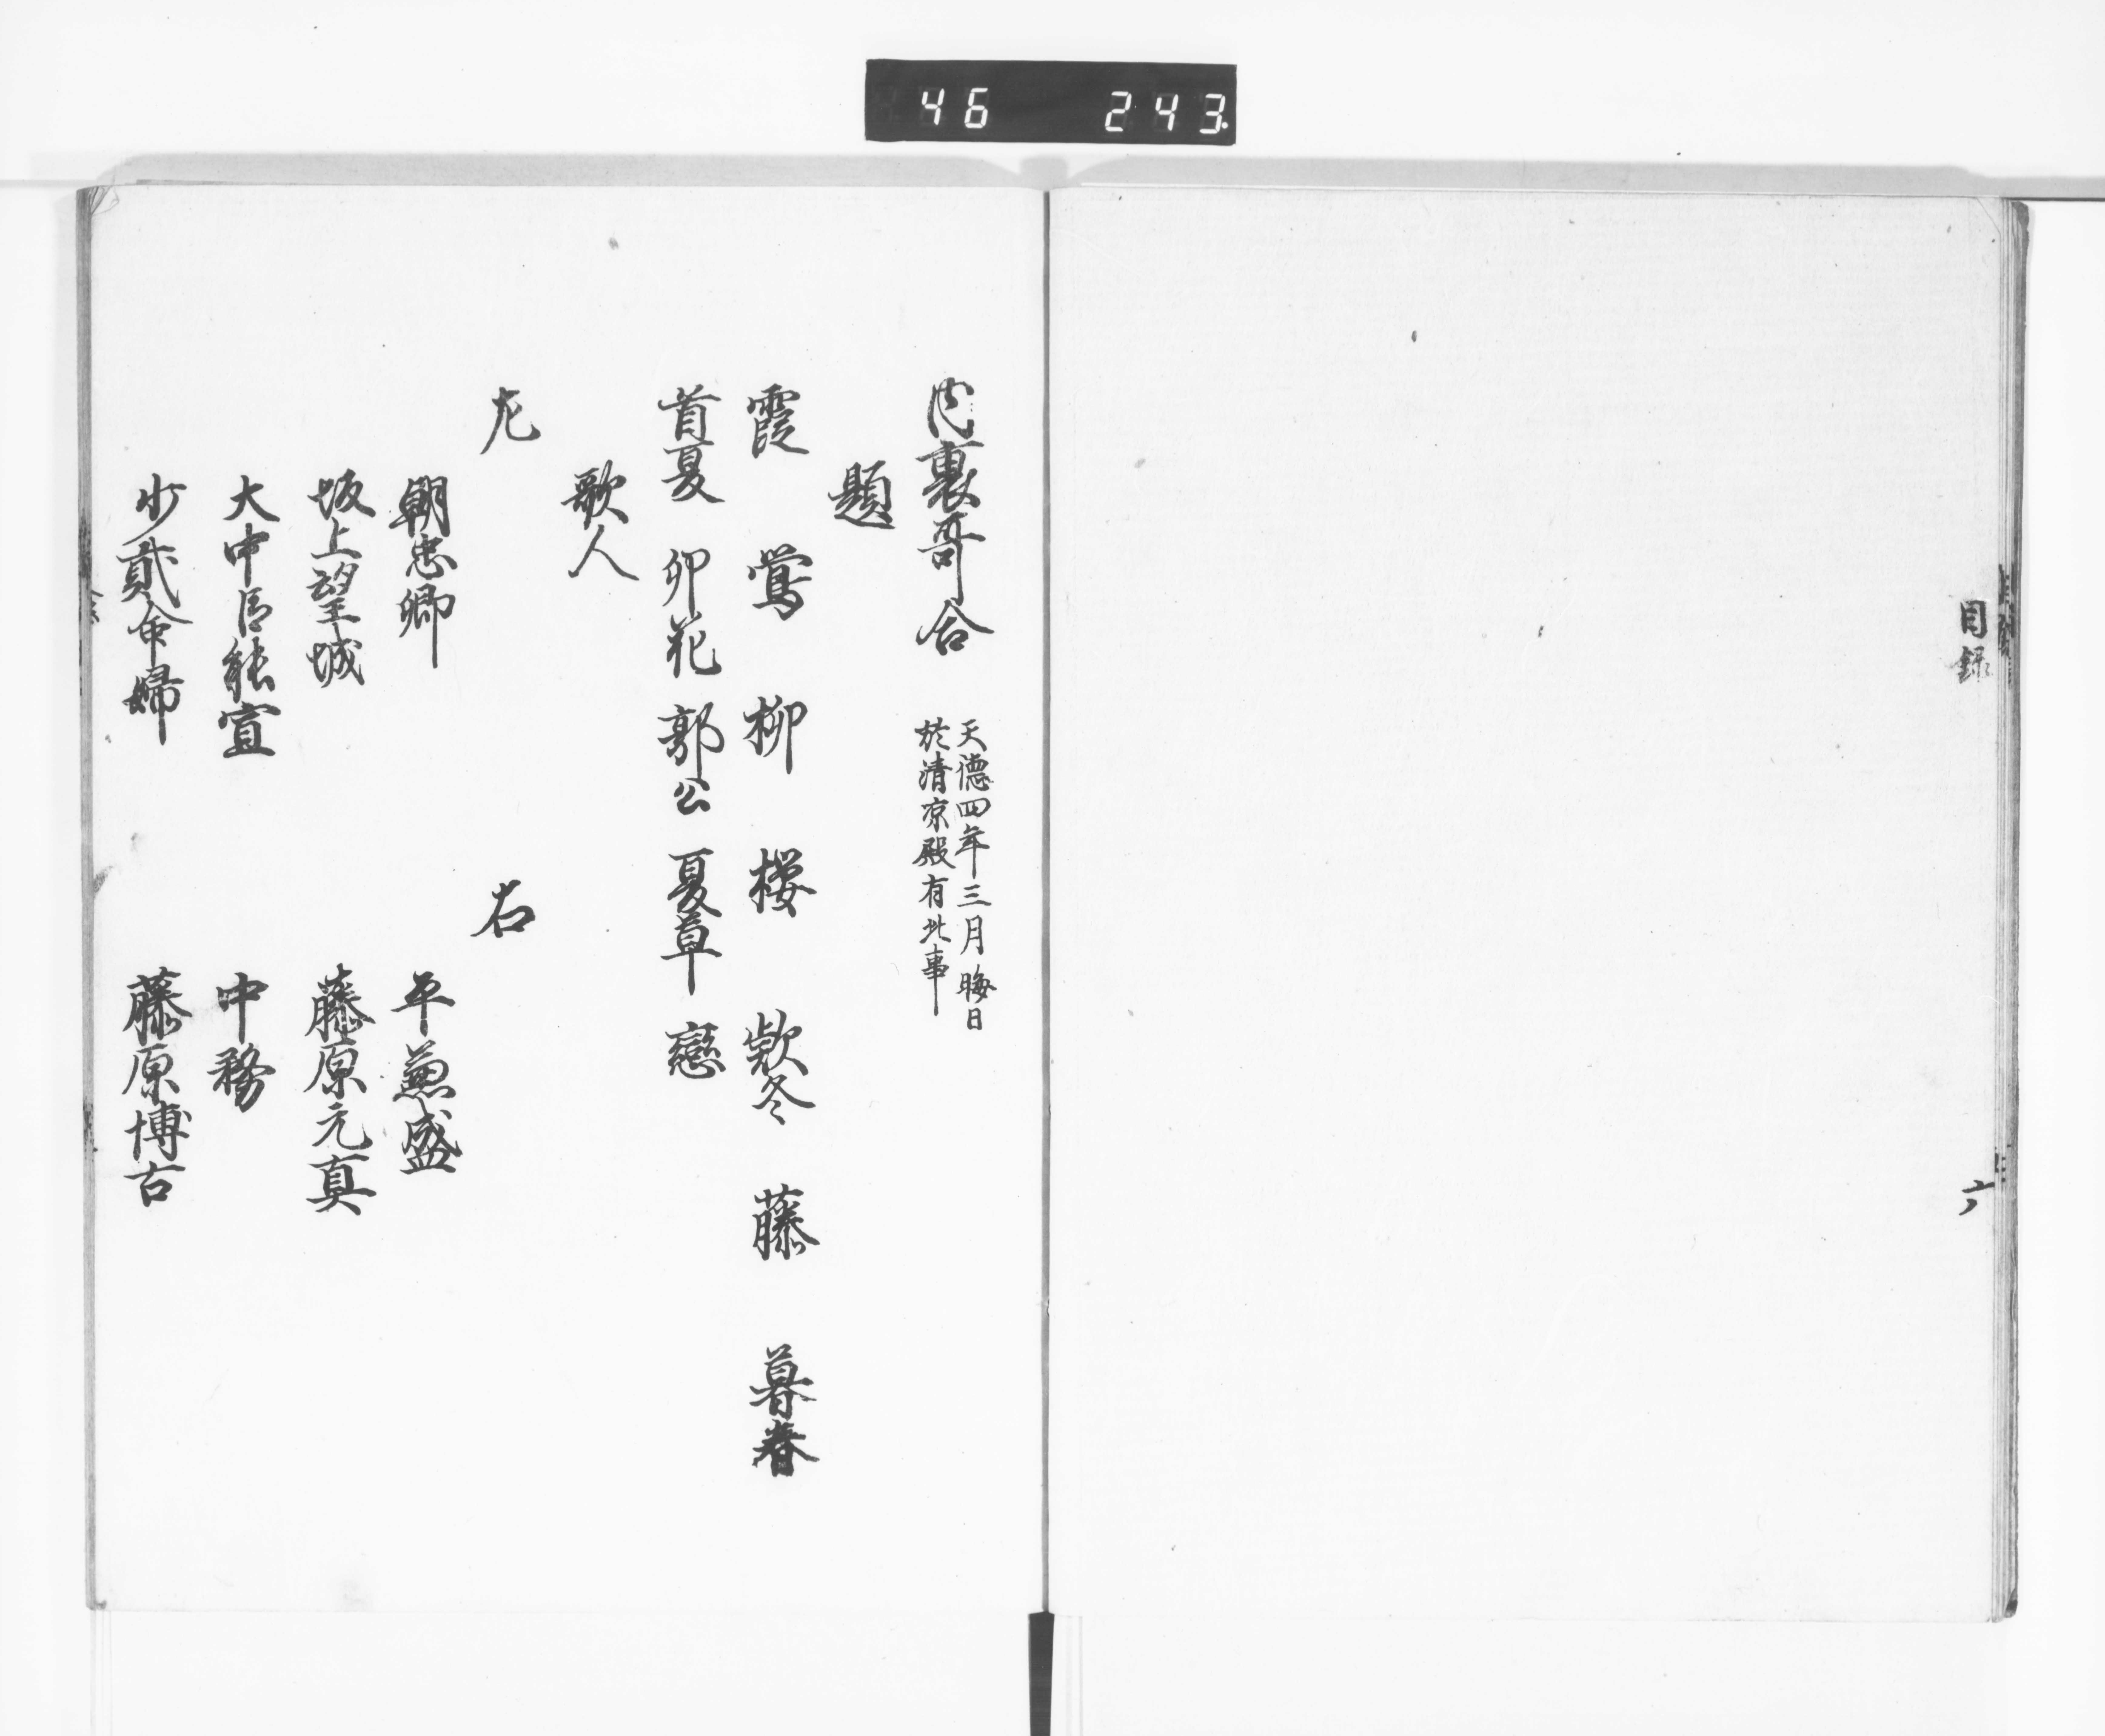 46 243
目録
六
内裏哥合 天德四年三月晦日
於清凉殿有此事
題
霞 鶯 柳 桜 欵冬 藤 暮春
首夏 卯花 郭公 夏草 戀
歌人
左 右
朝忠卿 平兼盛
坂上望城 藤原元真
大中臣能宣 中務
少貳命婦 藤原博古